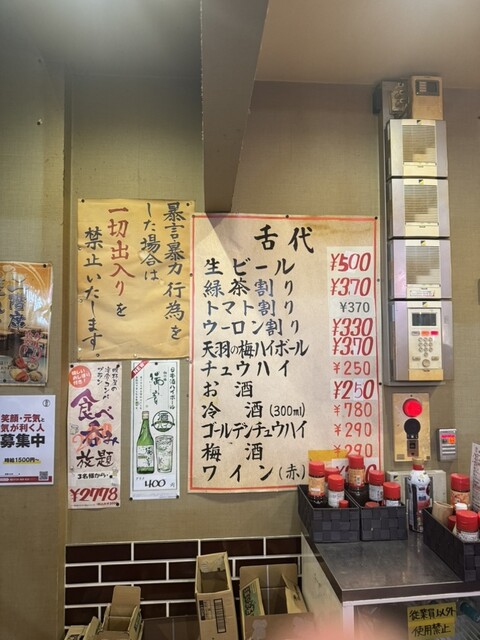 暴言暴力行為を
した場合は
一切出入りを
禁止いたします。
舌代
生ビール ¥500
緑茶割り ¥370
トマト割り ¥370
ウーロン割り ¥330
天羽の梅ハイボール ¥370
チュウハイ ¥250
お酒 ¥250
冷酒(300ml) ¥780
ゴールデンチュウハイ ¥290
梅酒 ¥290
ワイン(赤)
食べ
呑み
放題
3名様から
¥2778
日本酒ハイボール
400
笑顔・元気と
気が利く人
募集中
時給1500円
従業員以外
使用禁止